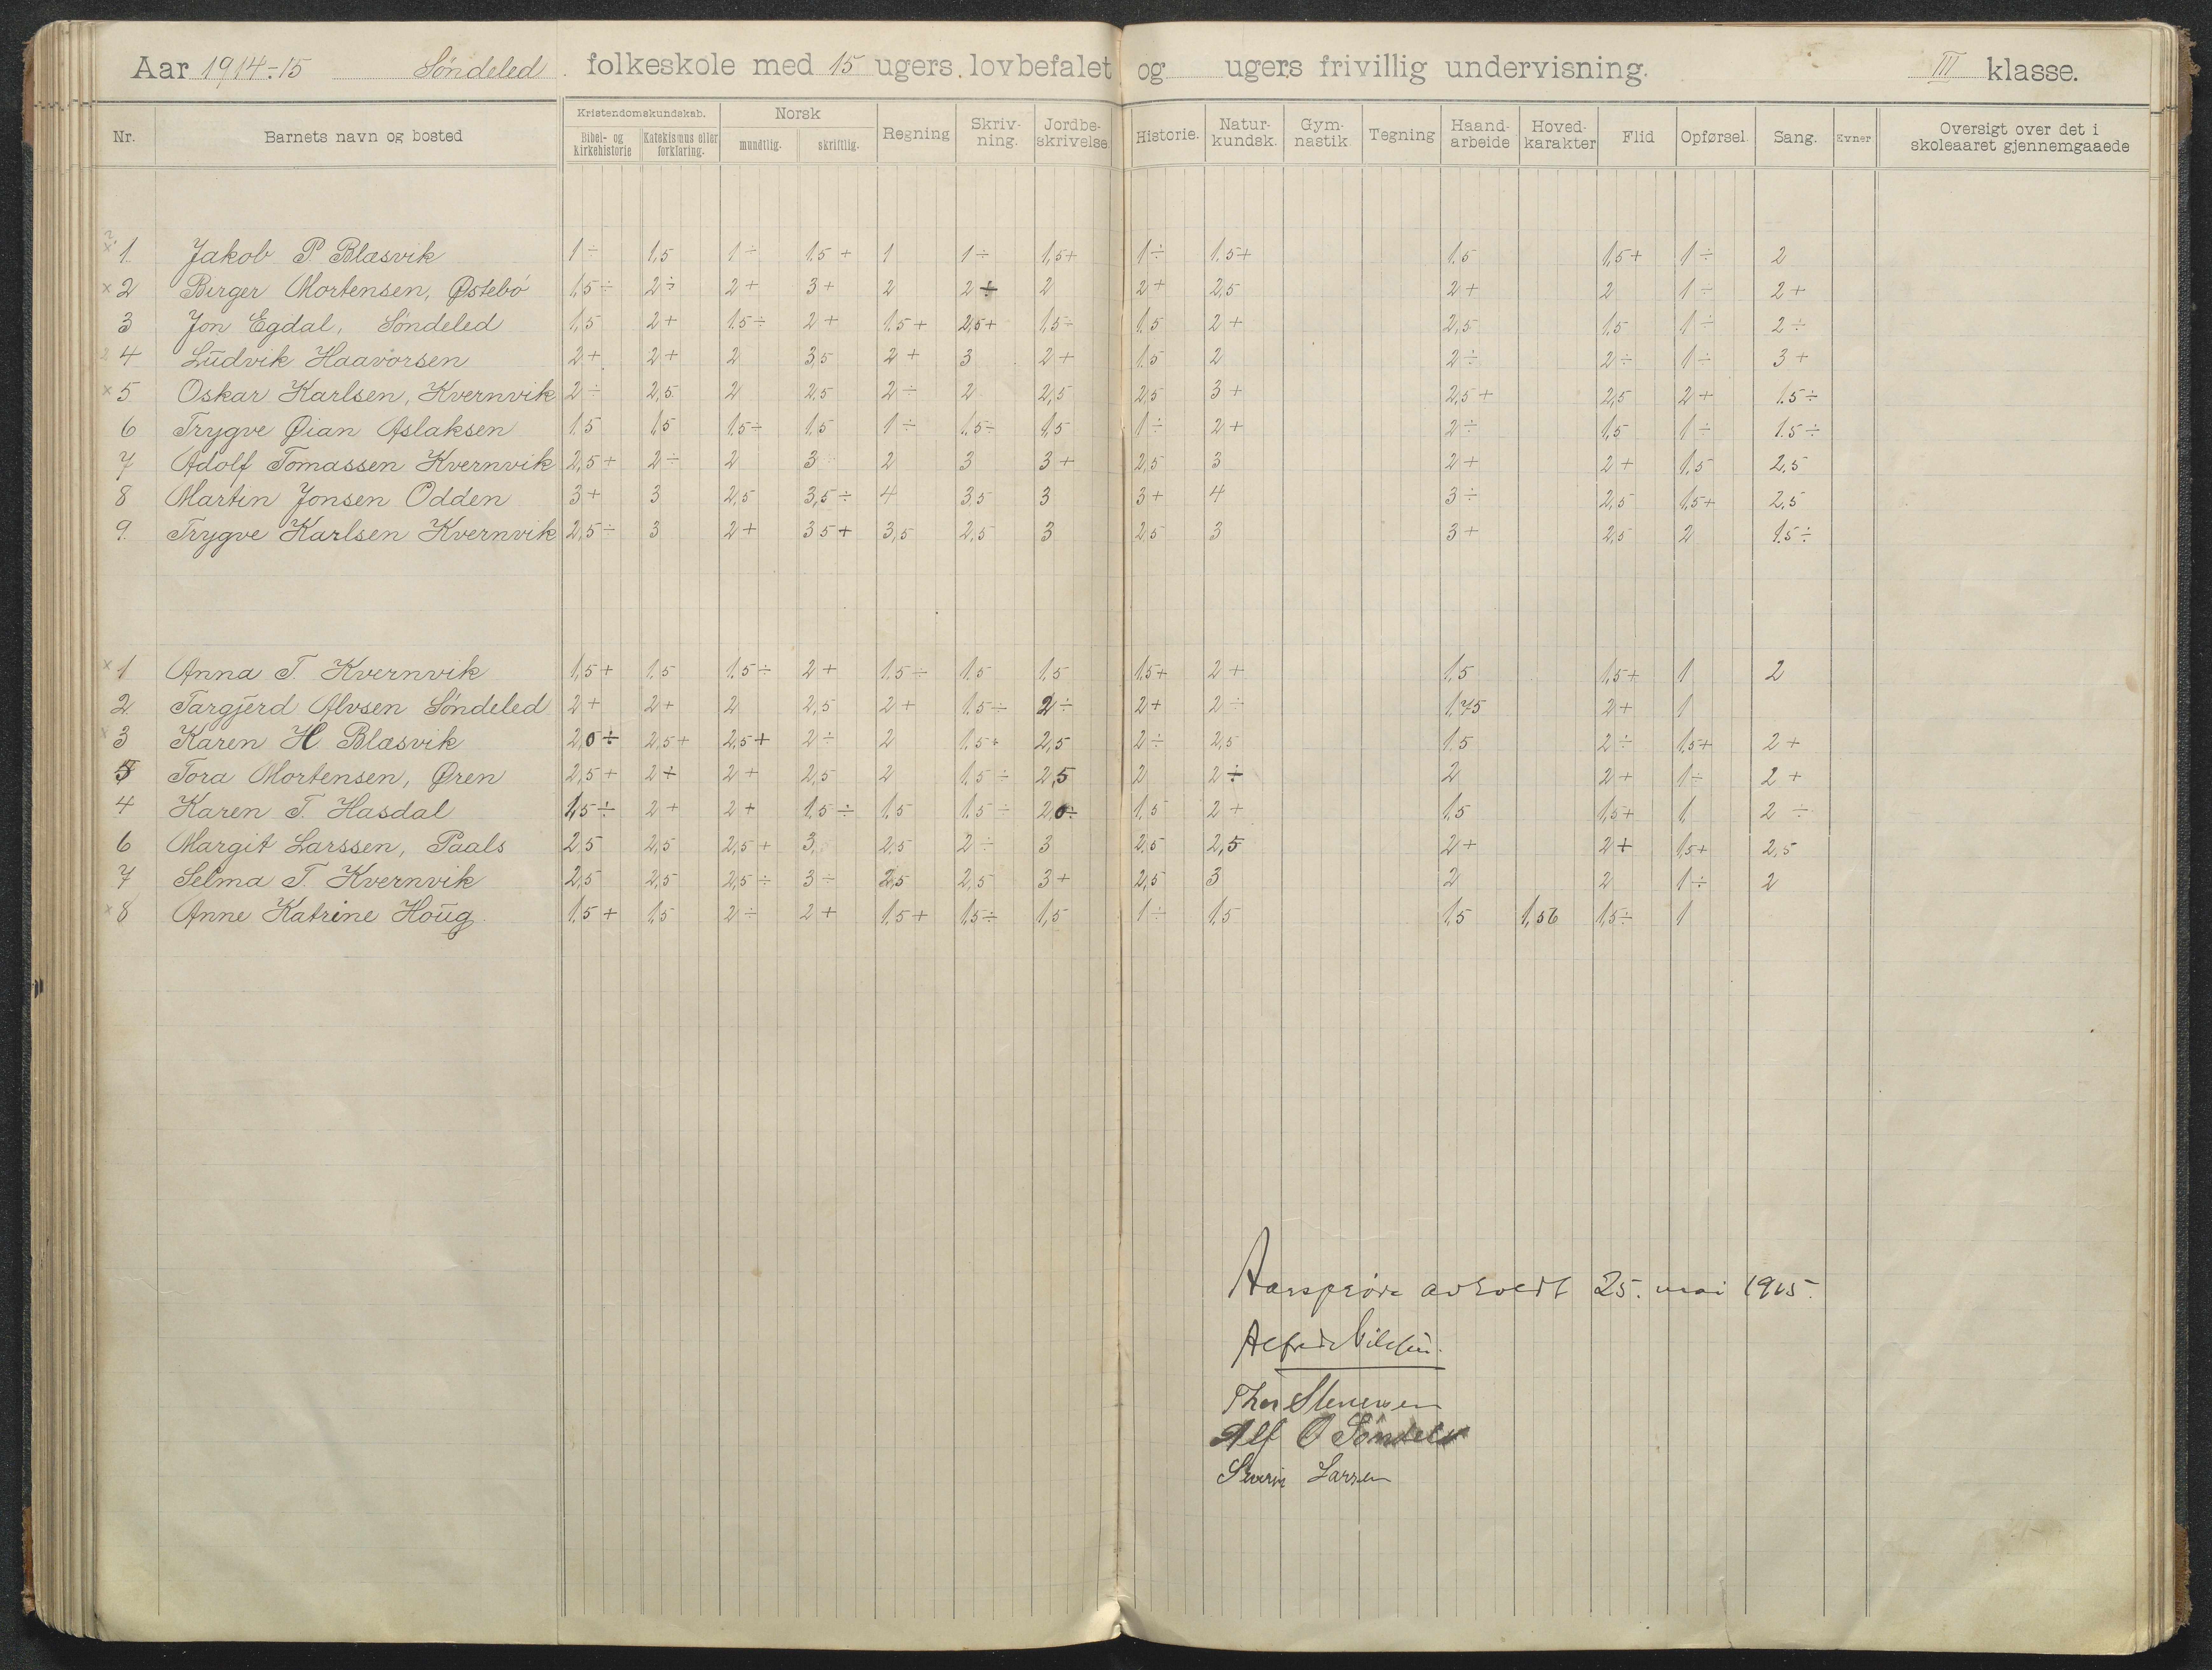 Aar 1914÷15 Søndeled folkeskole med 15 ugers lovbefalet og ugers frivillig undervisning. III klasse.
Nr. Barnets navn og bosted Kristendomskundskab. Bibel- og Kirkehistorie Katekismus eller forklaring. Norsk mundtlig. skriftlig. Regning Skriv-ning. Jordbe-skrivelse Historie. Natur-kundsk. Gym-nastik Tegning Haand-arbeide Hoved-karakter Flid Opførsel. Sang. Evner Oversigt over det i skoleaaret gjennemgaaede
1. Jakob P. Blæsvik 1÷ 1,5 1÷ 1.5+ 1 1÷ 1,5+ 1÷ 1.5+ 1.5 1,5+ 1÷ 2
2 Birger Mortensen, Østebø 1,5÷ 2÷ 2+ 3+ 2 2÷ 2 2+ 2,5 2+ 2 1÷ 2+
3 Jon Egdal, Søndeled 1,5 2+ 1.5÷ 2+ 1.5+ 2,5+ 1,5÷ 1.5 2+ 2,5 1.5 1÷ 2÷
4 Ludvik Haavorsen 2+ 2+ 2 3,5 2+ 3 2+ 1.5 2 2÷ 2÷ 1÷ 3+
5 Oskar Karlsen, Kvernvik 2÷ 2,5 2 2,5 2÷ 2 2,5 2,5 3+ 2,5+ 2,5 2+ 1.5÷
6 Trygve Øian Aslaksen 1.5 1,5 1.5÷ 1.5 1÷ 1.5÷ 1,5 1÷ 2+ 2÷ 1,5 1÷ 1.5÷
7 Adolf Tomassen Kvernvik 2,5+ 2÷ 2 3 2 3 3+ 2,5 3 2+ 2+ 1,5 2,5
8 Martin Jonsen Odden 3+ 3 2,5 3,5÷ 4 3,5 3 3+ 4 3÷ 2,5 1,5+ 2,5
9. Trygve Karlsen Kvernvik 2,5÷ 3 2+ 3 5+ 3,5 2,5 3 2,5 3 3+ 2,5 2 1.5÷
1 Anna T. Kvernvik 1,5+ 1.5 1.5÷ 2+ 1.5÷ 1.5 1.5 1.5+ 2+ 1.5 1,5+ 1 2
2 Targjerd Alvsen Søndeled 2+ 2+ 2 2,5 2+ 1.5÷ 2÷ 2+ 2÷ 1.75 2+ 1
3 Karen H Blæsvik 2,0÷ 2,5+ 2,5+ 2÷ 2 1.5+ 2,5 2÷ 2,5 1.5 2÷ 1.5+ 2+
5 Tora Mortensen, Øren 2,5+ 2÷ 2+ 2,5 2 1.5÷ 2,5 2 2÷ 2 2+ 1÷ 2+
4 Karen T. Hasdal 1,5÷ 2+ 2+ 1.5÷ 1.5 1.5÷ 2,0÷ 1.5 2+ 1.5 1,5+ 1 2÷
6 Margit Larssen, Paals 2 5 2,5 2,5+ 3 2,5 2÷ 3 2,5 2,5 2+ 2+ 1,5+ 2,5
7 Selma T. Kvernvik 2,5 2,5 2,5÷ 3÷ 2,5 2,5 3+ 2,5 3 2 2 1÷ 2
8 Anne Katrine Houg 1.5+ 1.5 2÷ 2+ 1.5+ 1.5÷ 1,5 1÷ 1.5 1.5 1,56 1,5÷ 1
Aarsprøve avholdt 25. mai 1915.
Alfred Nilssen.
Thor Stenersen
Alf O Søndeled
Severin Larsen